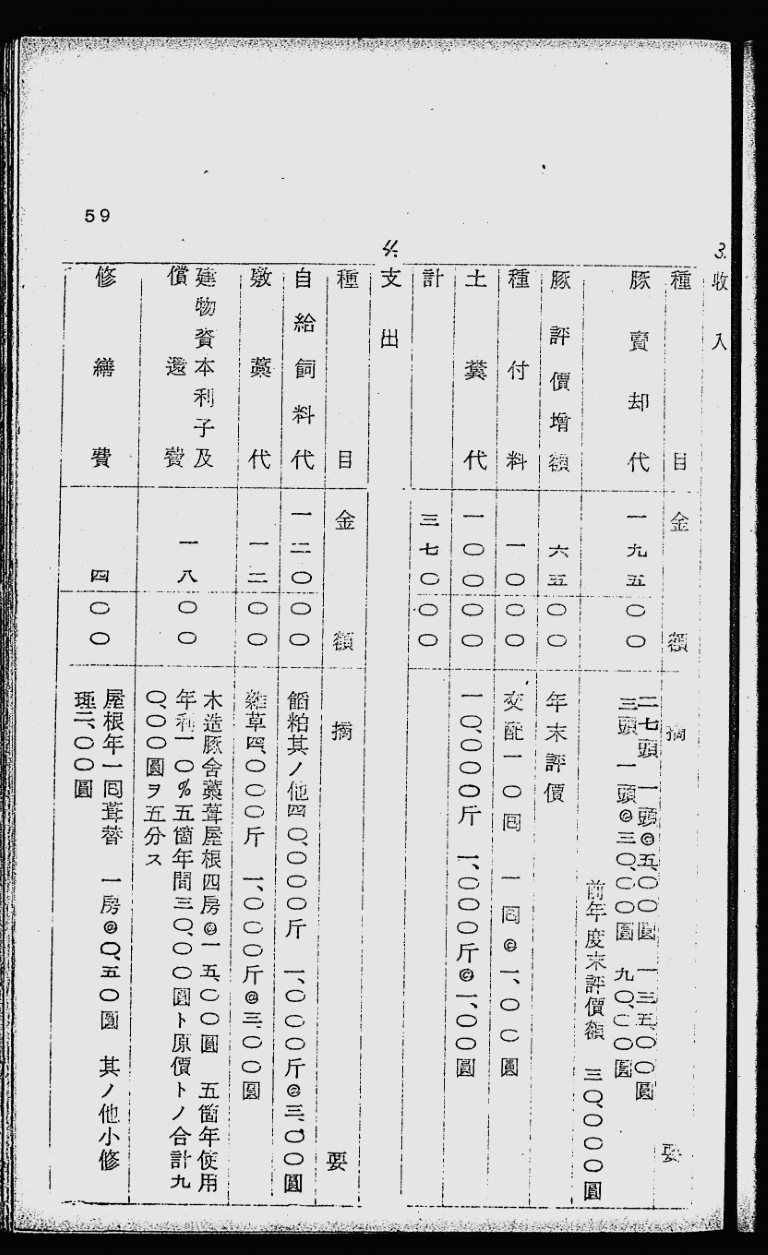 3. 收入
種目 金額 摘要
豚賣却代 一九五〇〇 二七頭 一頭@五、〇〇圓 一三五、〇〇圓
三頭 一頭@三〇、〇〇圓 九〇、〇〇圓
豚評價增額 六五〇〇 年末評價 前年度末評價額 三〇、〇〇〇圓
種付料 一〇〇〇 交配一〇囘 一囘@一、〇〇圓
土糞代 一〇〇〇〇 一〇、〇〇〇斤 一、〇〇〇斤@一、〇〇圓
計 三七〇〇〇
4. 支出
種目 金額 摘要
自給飼料代 一二〇〇〇 餡粕其ノ他四〇、〇〇〇斤 一、〇〇〇斤@三、〇〇圓
敷藁代 一二〇〇 雜草四、〇〇〇斤 一、〇〇〇斤@三、〇〇圓
建物資本利子及償還費 一八〇〇 木造豚舍藁葺屋根四房@一五、〇〇圓 五箇年使用
年利一〇%五箇年間三〇、〇〇圓ト原價トノ合計九
〇、〇〇圓ヲ五分ス
修繕費 四〇〇 屋根年一囘葺替 一房@〇、五〇圓 其ノ他小修
理二、〇〇圓
59